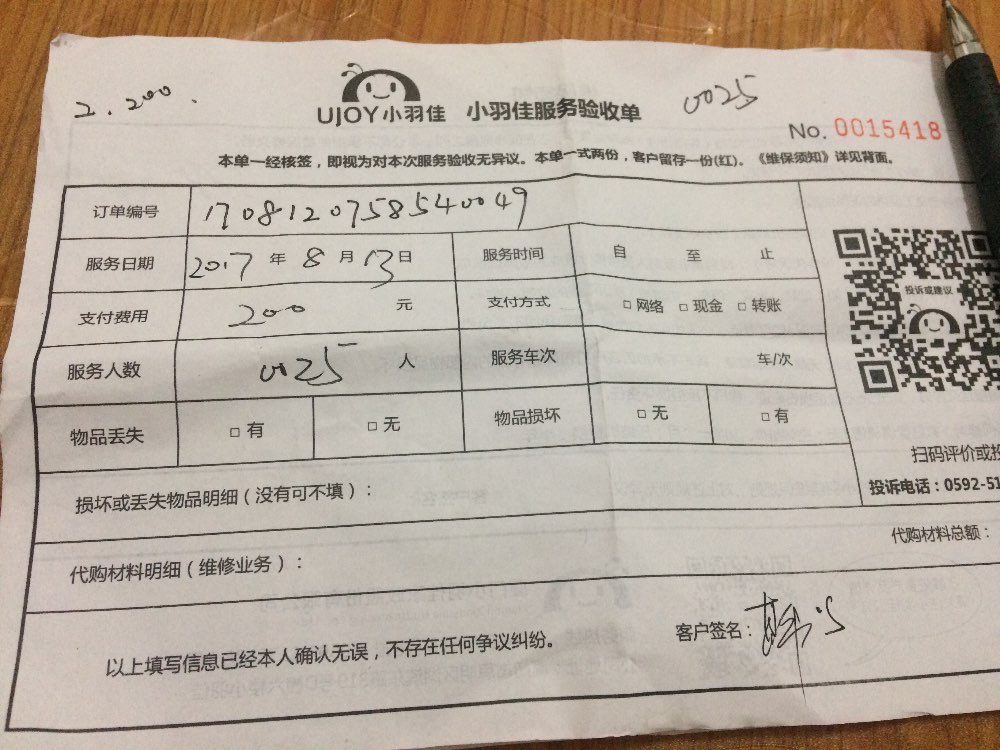 2.200.
UJOY小羽佳 小羽佳服务验收单
0025
No. 0015418
本单一经核签，即视为对本次服务验收无异议。本单一式两份，客户留存一份(红)。《维保须知》详见背面。
订单编号 170812075854 0049
服务日期 2017 年 8 月 13 日 服务时间 自 至 止
投诉或建议
支付费用 200 元 支付方式 □ 网络 □ 现金 □ 转账
服务人数 0025 人 服务车次 车/次
物品丢失 □ 有 □ 无 物品损坏 □ 无 □ 有
扫码评价或投
投诉电话：0592-51
损坏或丢失物品明细（没有可不填）：
代购材料总额：
代购材料明细（维修业务）：
以上填写信息已经本人确认无误，不存在任何争议纠纷。
客户签名：